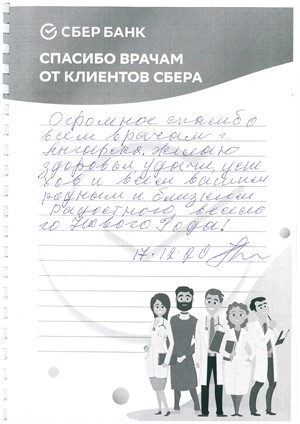 СБЕР БАНК
СПАСИБО ВРАЧАМ
ОТ КЛИЕНТОВ СБЕРА
Огромное спасибо
всем врачам г.
Ангарска. Желаю
здоровья, удачи, успе
хов и всем вашим
родным и близким
Радостного, весело
го Нового Года!
17.12.20